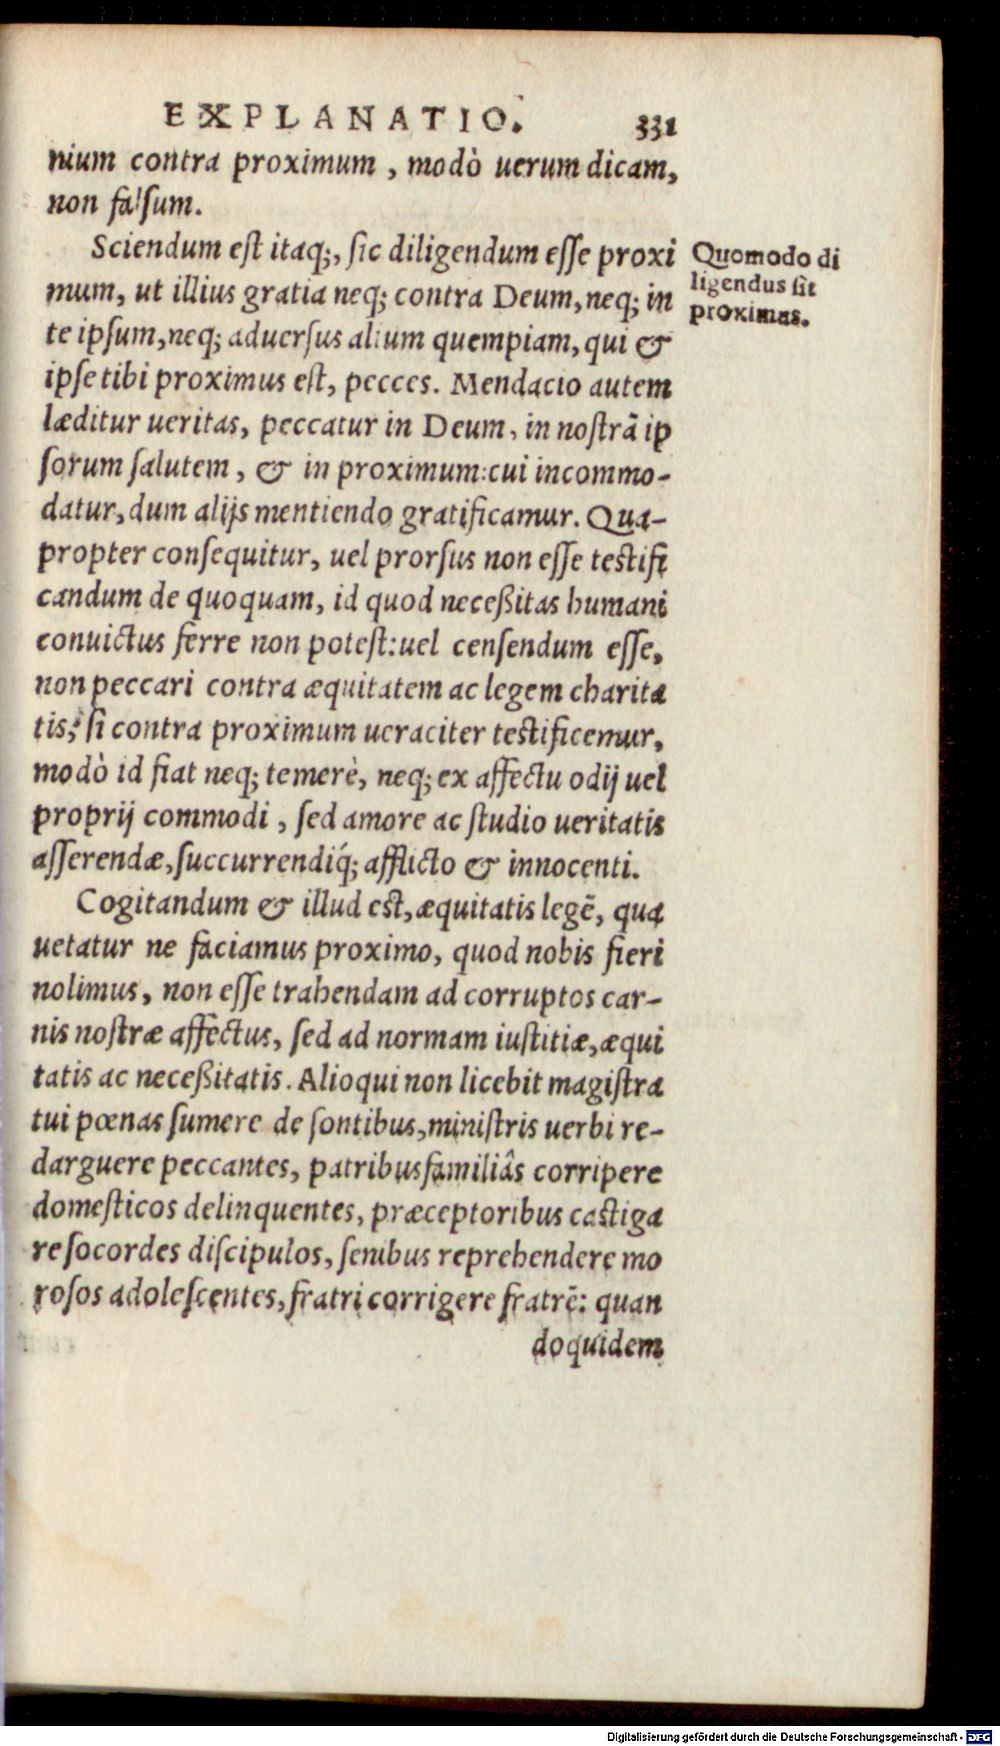 EXPLANATIO. 331
nium contra proximum, modò uerum dicam,
non falſum.
Sciendum eſt itaq;, ſic diligendum eſſe proxi
mum, ut illius gratia neq; contra Deum, neq; in
te ipſum, neq; aduerſus alium quempiam, qui &
ipſe tibi proximus eſt, pecces. Mendacio autem
læditur ueritas, peccatur in Deum, in noſtrā ip
ſorum ſalutem, & in proximum: cui incommo-
datur, dum alijs mentiendo gratificamur. Qua-
propter conſequitur, uel prorſus non eſſe teſtifi
candum de quoquam, id quod neceßitas humani
conuictus ferre non poteſt: uel cenſendum eſſe,
non peccari contra æquitatem ac legem charita
tis, ſi contra proximum ueraciter teſtificemur,
modò id fiat neq; temerè, neq; ex affectu odij uel
proprij commodi, ſed amore ac ſtudio ueritatis
aſſerendæ, ſuccurrendiq́; afflicto & innocenti.
Cogitandum & illud eſt, æquitatis legē, qua
uetatur ne faciamus proximo, quod nobis fieri
nolimus, non eſſe trahendam ad corruptos car-
nis noſtræ affectus, ſed ad normam iuſtitiæ, æqui
tatis ac neceßitatis. Alioqui non licebit magiſtra
tui pœnas ſumere de ſontibus, miniſtris uerbi re-
darguere peccantes, patribusfamiliâs corripere
domeſticos delinquentes, præceptoribus caſtiga
re ſocordes diſcipulos, ſenibus reprehendere mo
roſos adoleſcentes, fratri corrigere fratrē: quan
doquidem
Quomodo di
ligendus ſit
proximus.
Digitalisierung gefördert durch die Deutsche Forschungsgemeinschaft - DFG